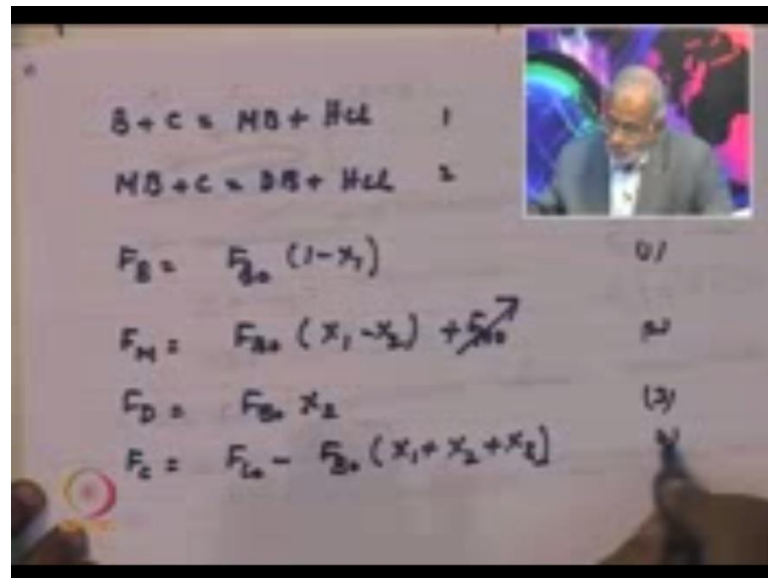 B + C = MB + HCl 1
MB + C = DB + HCl 2
F_B = F_B₀ (1 - x₁) (1)
F_M = F_B₀ (x₁ - x₂) + F_M₀
F_D = F_B₀ x₂ (3)
F_C = F_C₀ - F_B₀ (x₁ + x₂ + x₃]